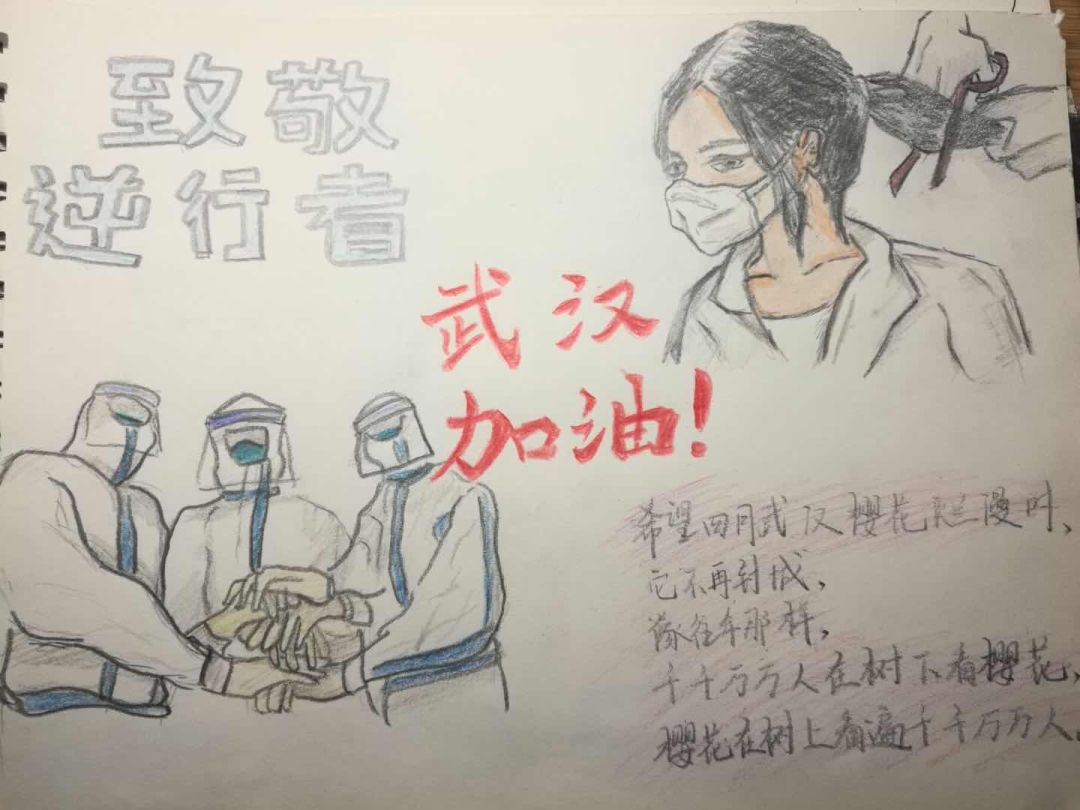 致敬
逆行者
武汉
加油!
希望四月武汉樱花烂漫时、
它不再封城、
像往年那样,
千千万万人在树下看樱花、
樱花在树上看遍千千万万人。